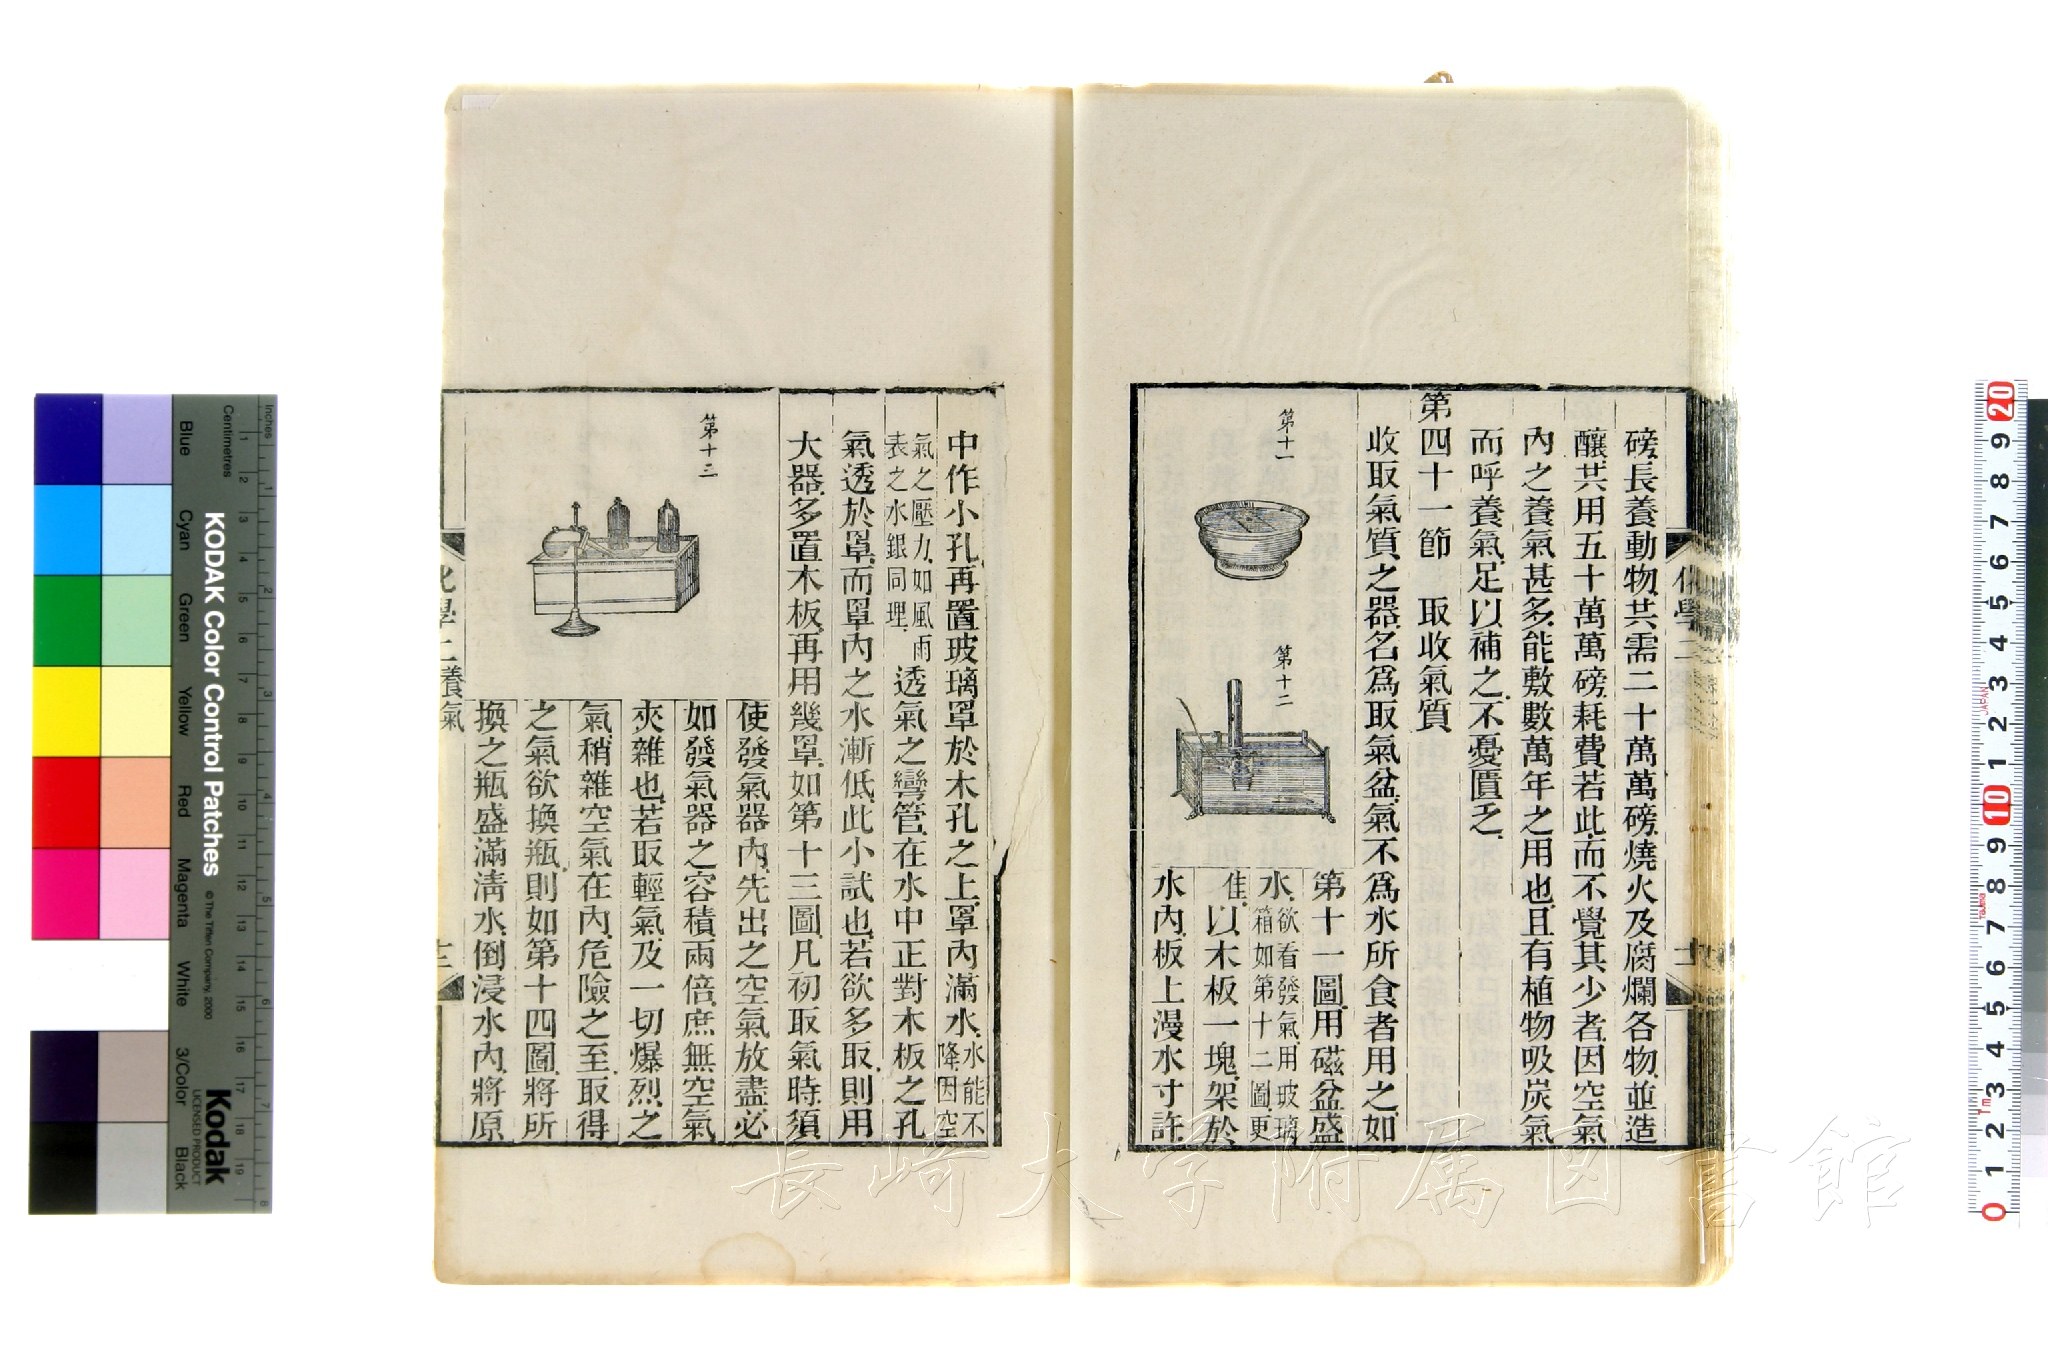 磅、長養動物、共需二十萬萬磅、燒火及腐爛各物、並造
釀、共用五十萬萬磅、耗費若此、而不覺其少者、因空氣
內之養氣甚多、能敷數萬年之用也、且有植物吸炭氣
而呼養氣、足以補之、不憂匱乏、
第四十一節　取收氣質
收取氣質之器、名爲取氣盆、氣不爲水所食者用之、如
第十一
第十二
第十一圖、用磁盆盛
水、欲看發氣、用玻璃
箱如第十二圖、更
佳、以木板一塊、架於
水內、板上漫水寸許、
化學二
中作小孔、再置玻璃罩於木孔之上、罩內滿水、水能不
降、因空
氣之壓力、如風雨
表之水銀同理、
透氣之彎管、在水中正對木板之孔、
氣透於罩、而罩內之水漸低、此小試也、若欲多取、則用
大器、多置木板、再用幾罩、如第十三圖、凡初取氣時、須
第十三
使發氣器內、先出之空氣放盡、必
如發氣器之容積兩倍、庶無空氣
夾雜也、若取輕氣、及一切爆烈之
氣、稍雜空氣在內、危險之至、取得
之氣欲換瓶、則如第十四圖、將所
換之瓶盛滿清水、倒浸水內、將原
化學二 養氣
十二
長崎大学附属図書館
KODAK Color Control Patches
© The Tiffen Company, 2000
Kodak
LICENSED PRODUCT
Inches
Centimetres
Blue
Cyan
Green
Yellow
Red
Magenta
White
3/Color
Black
1 2 3 4 5 6 7 8
1 2 3 4 5 6 7 8 9 10 11 12 13 14 15 16 17 18 19
20 9 8 7 6 5 4 3 2 1 10 9 8 7 6 5 4 3 2 1 0
JAPAN